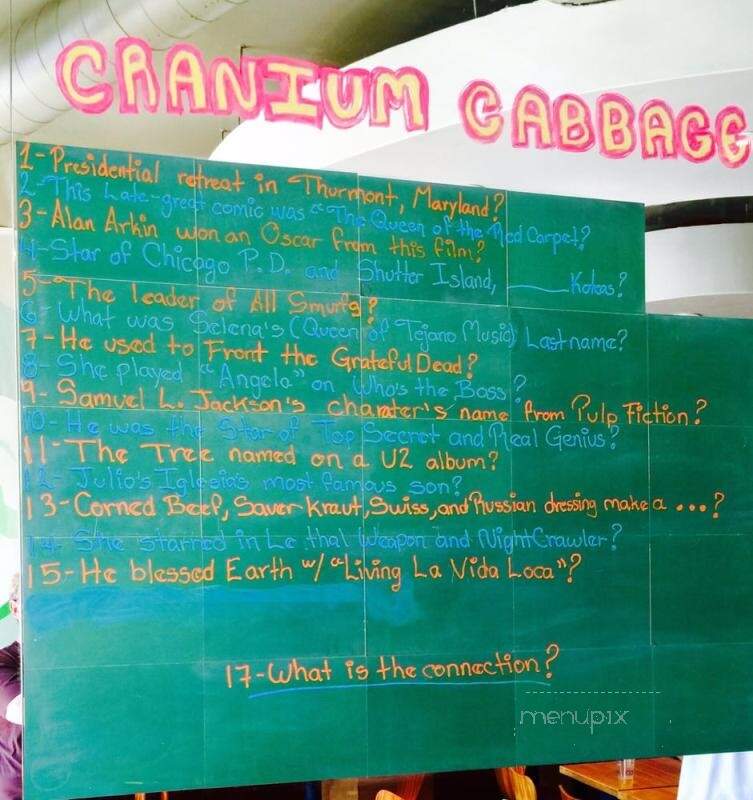 CRANIUM CABBAGE
1-Presidential retreat in Thurmont, Maryland?
2-This Late-great comic was "The Queen of the Red Carpet?
3-Alan Arkin won an Oscar from this film?
4-Star of Chicago P.D. and Shutter Island, _____ Koteas?
5-The leader of All Smurfs?
6-What was Selena's (Queen of Tejano Music) Last name?
7-He used to Front the Grateful Dead?
8-She played "Angela" on Who's the Boss?
9-Samuel L. Jackson's charater's name from Pulp Fiction?
10-He was the Star of Top Secret and Real Genius?
11-The Tree named on a U2 album?
12-Julio's Iglesias most famous son?
13-Corned Beef, Saver kraut, Swiss, and Russian dressing make a ...?
14-She starred in Lethal Weapon and NightCrawler?
15-He blessed Earth w/ "Living La Vida Loca"?
17-What is the connection?
menupix